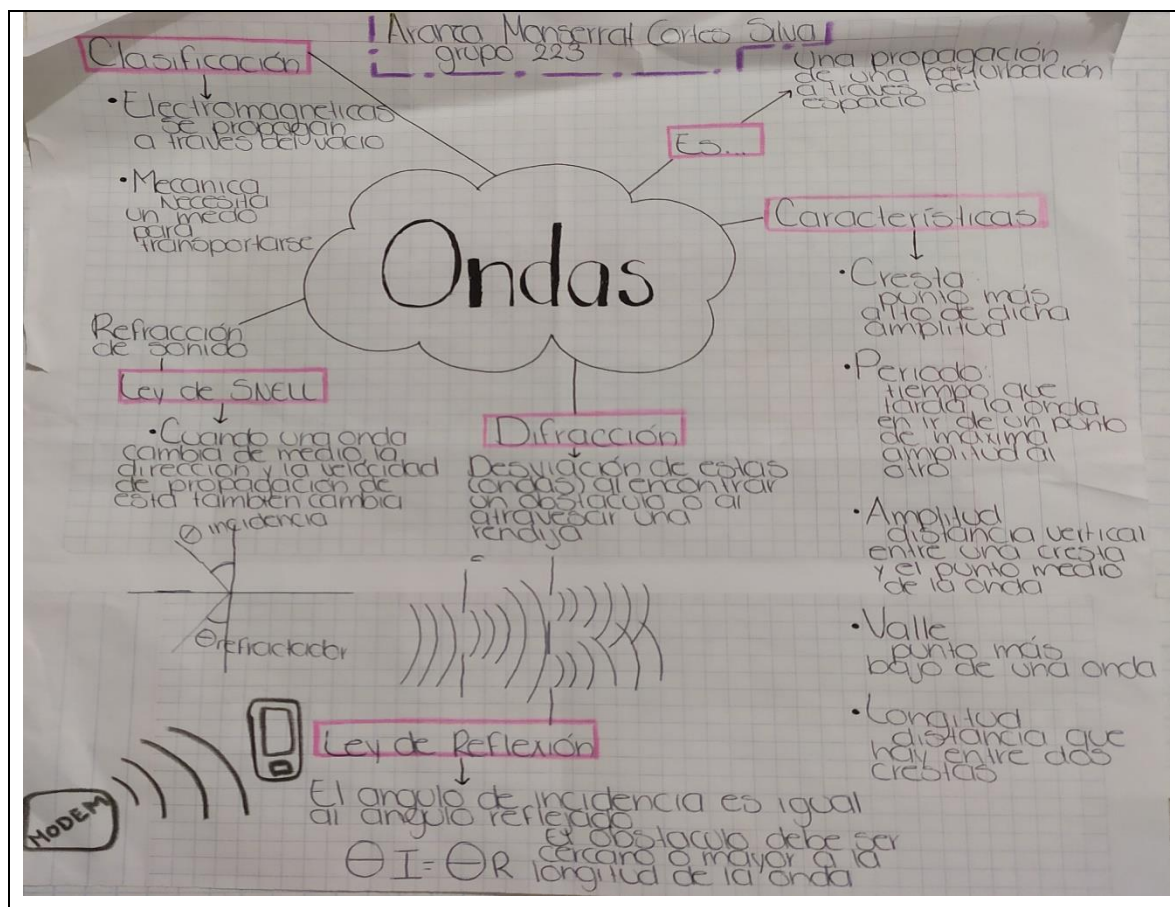 Aranza Monserrat Cortes Silva
grupo 223
Clasificación
• Electromagneticas
se propagan
a traves del vacio
• Mecanica
Necesita
un medio
para
transportarse
Es...
Una propagación
de una perturbación
a traves del
espacio
Ondas
Características
• Cresta:
punto más
alto de dicha
amplitud
• Periodo:
tiempo que
tarda la onda
en ir de un punto
de máxima
amplitud al
otro
• Amplitud
distancia vertical
entre una cresta
y el punto medio
de la onda
• Valle
punto más
bajo de una onda
• Longitud
distancia que
hay entre dos
crestas
Refracción
de sonido
Ley de SNELL
• Cuando una onda
cambia de medio la
dirección y la velocidad
de propagación de
esta también cambia
θ incidencia
θ refractador
Difracción
Desviación de estas
(ondas) al encontrar
un obstaculo o al
atravesar una
rendija
MODEM
Ley de Reflexión
El angulo de incidencia es igual
al angulo reflejado
El obstaculo debe ser
cercano o mayor a la
longitud de la onda
θI = θR